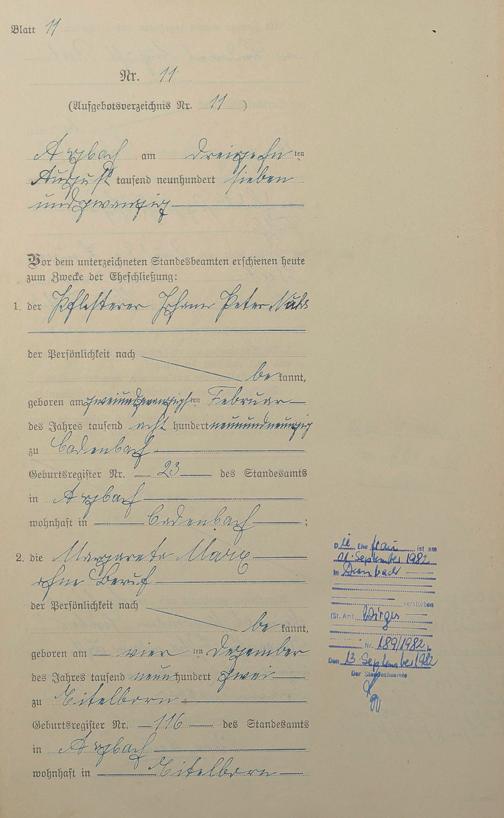 Blatt 11
Nr. 11
(Aufgebotsverzeichnis Nr. 11 )
Arzbach am dreizehnten
August tausend neunhundert sieben
undzwanzig
Vor dem unterzeichneten Standesbeamten erschienen heute
zum Zwecke der Eheschließung:
1. der Pflasterer Johann Peter
der Persönlichkeit nach
bekannt,
geboren am zweiundzwanzigsten Februar
des Jahres tausend acht hundert neunundneunzig
zu Cadenbach
Geburtsregister Nr. 23 des Standesamts
in Arzbach
wohnhaft in Cadenbach ;
2. die Margareta Marx
ohne Beruf
der Persönlichkeit nach
bekannt,
geboren am vierten Dezember
des Jahres tausend neunhundert zwei
zu Eitelborn
Geburtsregister Nr. 116 des Standesamts
in Arzbach
wohnhaft in Eitelborn
Die Ehefrau ist am
September 1982
in Dernbach
verstorben
(St. Amt Wirges
Nr. 189/1982
Den 13 September 1982
Der Standesbeamte